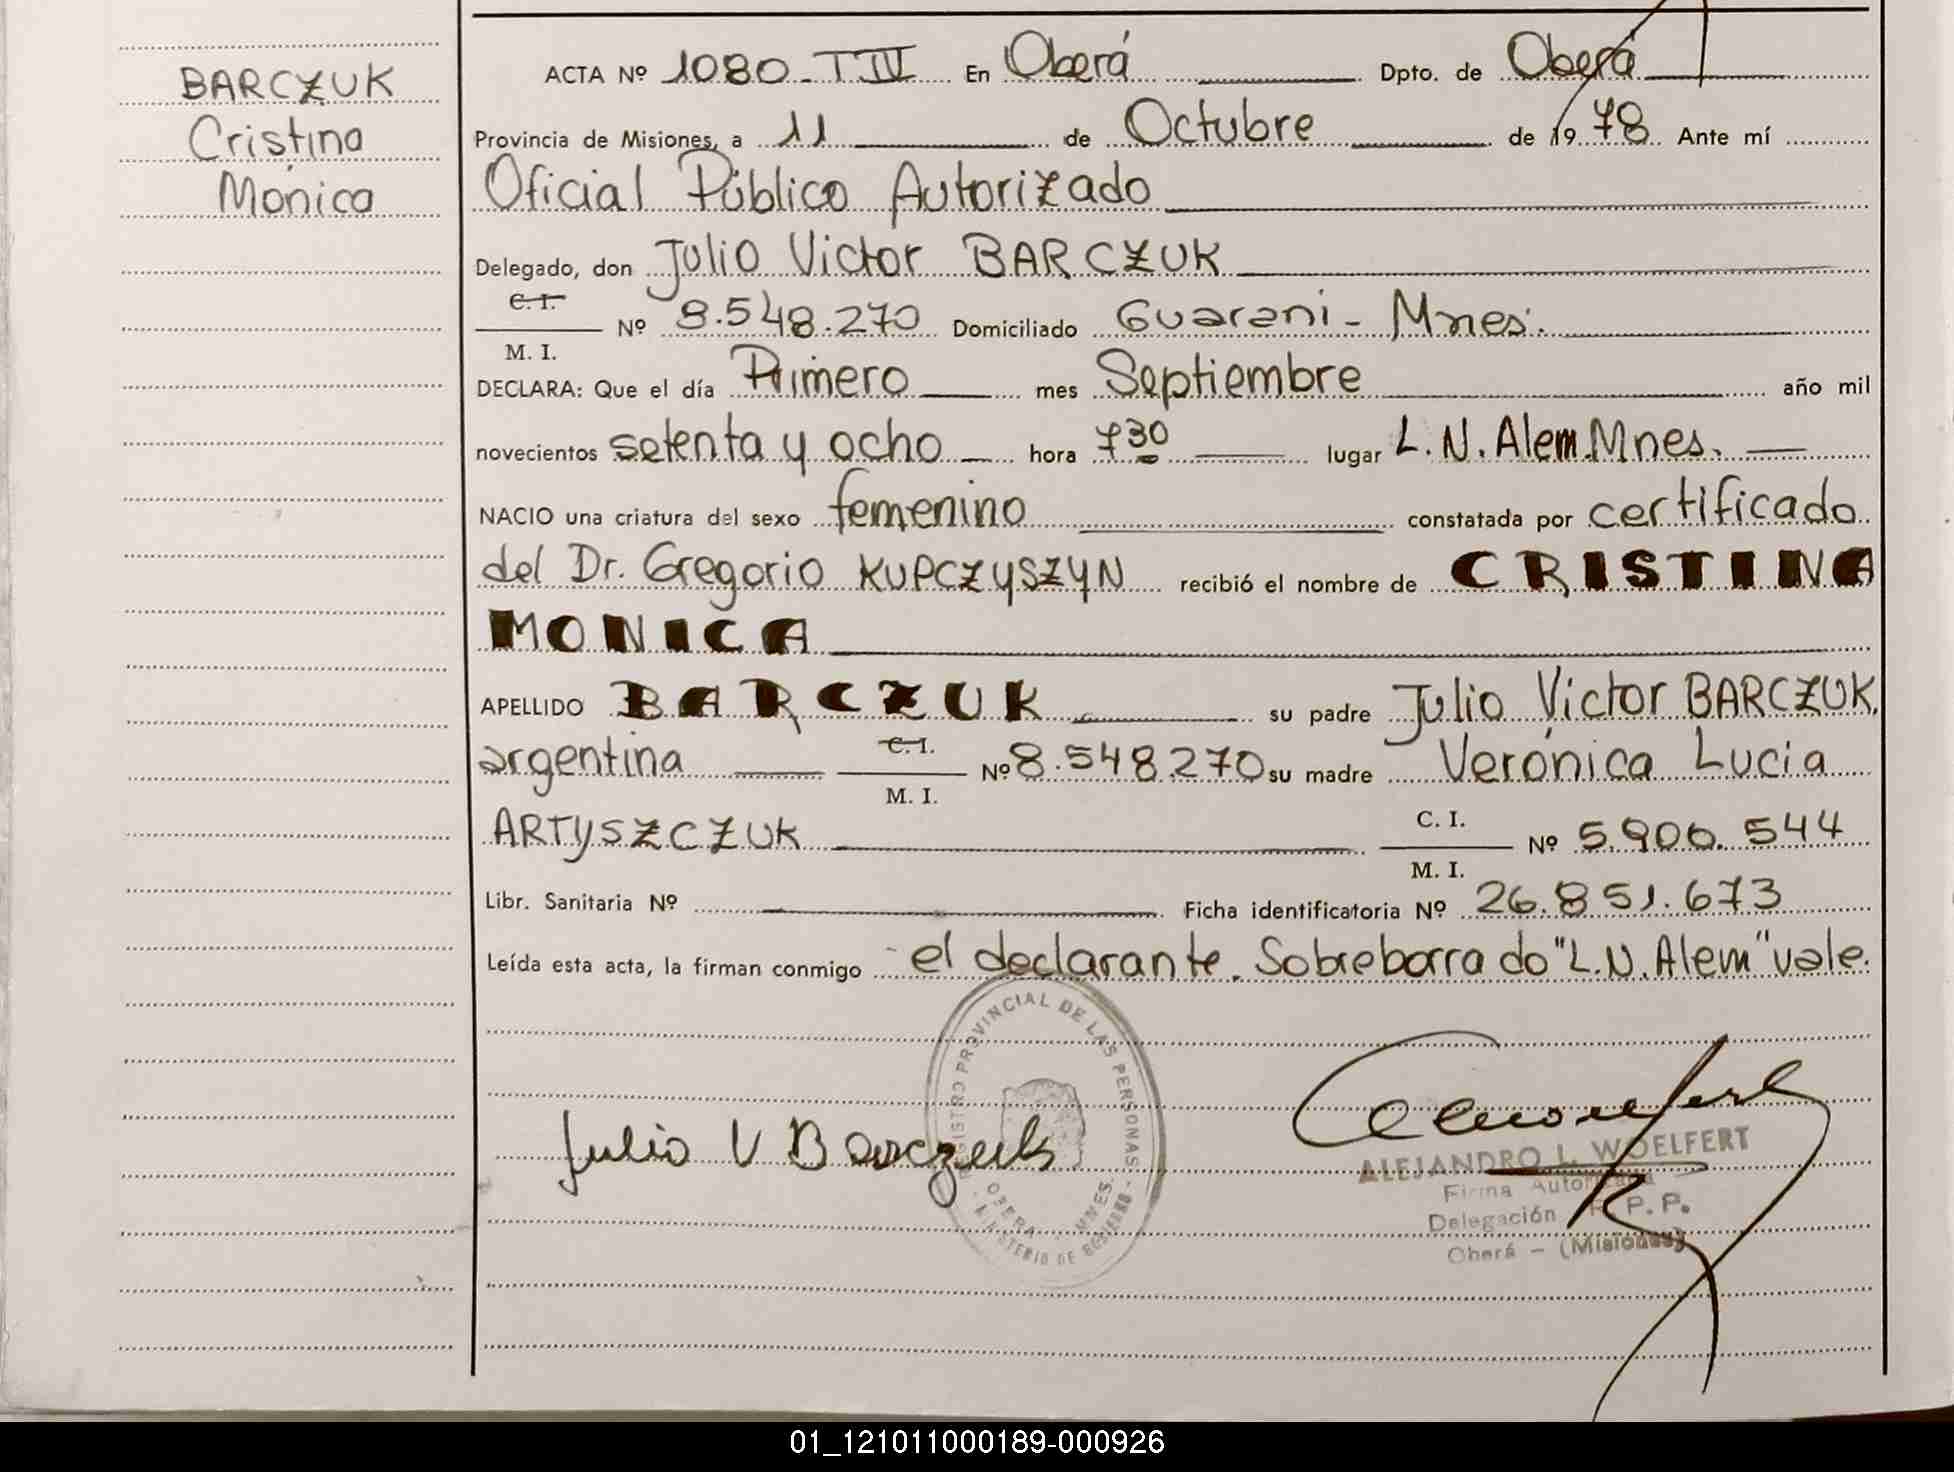 BARCZUK
Cristina
Mónica
ACTA Nº 1080 - T IV En Oberá Dpto. de Oberá
Provincia de Misiones, a 11 de Octubre de 1978 Ante mí
Oficial Público Autorizado
Delegado, don Julio Victor BARCZUK
C. I.
M. I.
Nº 8.548.270 Domiciliado Guarani - Mnes.
DECLARA: Que el día Primero mes Septiembre año mil
novecientos setenta y ocho hora 7 30 lugar L. N. Alem. Mnes.
NACIO una criatura del sexo femenino constatada por certificado
del Dr. Gregorio KUPCZYSZYN recibió el nombre de CRISTINA
MONICA
APELLIDO BARCZUK su padre Julio Victor BARCZUK,
argentina C. I. M. I. Nº 8.548.270 su madre Verónica Lucia
ARTYSZCZUK C. I. M. I. Nº 5.900.544
Libr. Sanitaria Nº Ficha identificatoria Nº 26.851.673
Leída esta acta, la firman conmigo el declarante. Sobreborrado "L.N. Alem" vale.
REGISTRO PROVINCIAL DE LAS PERSONAS -
OBERA MNES.
MINISTERIO DE GOBIERNO
Julio V Barczuk
ALEJANDRO L. WOELFERT
Firma Autorizada
Delegación R. P. P.
Oberá - (Misiones)
01_121011000189-000926